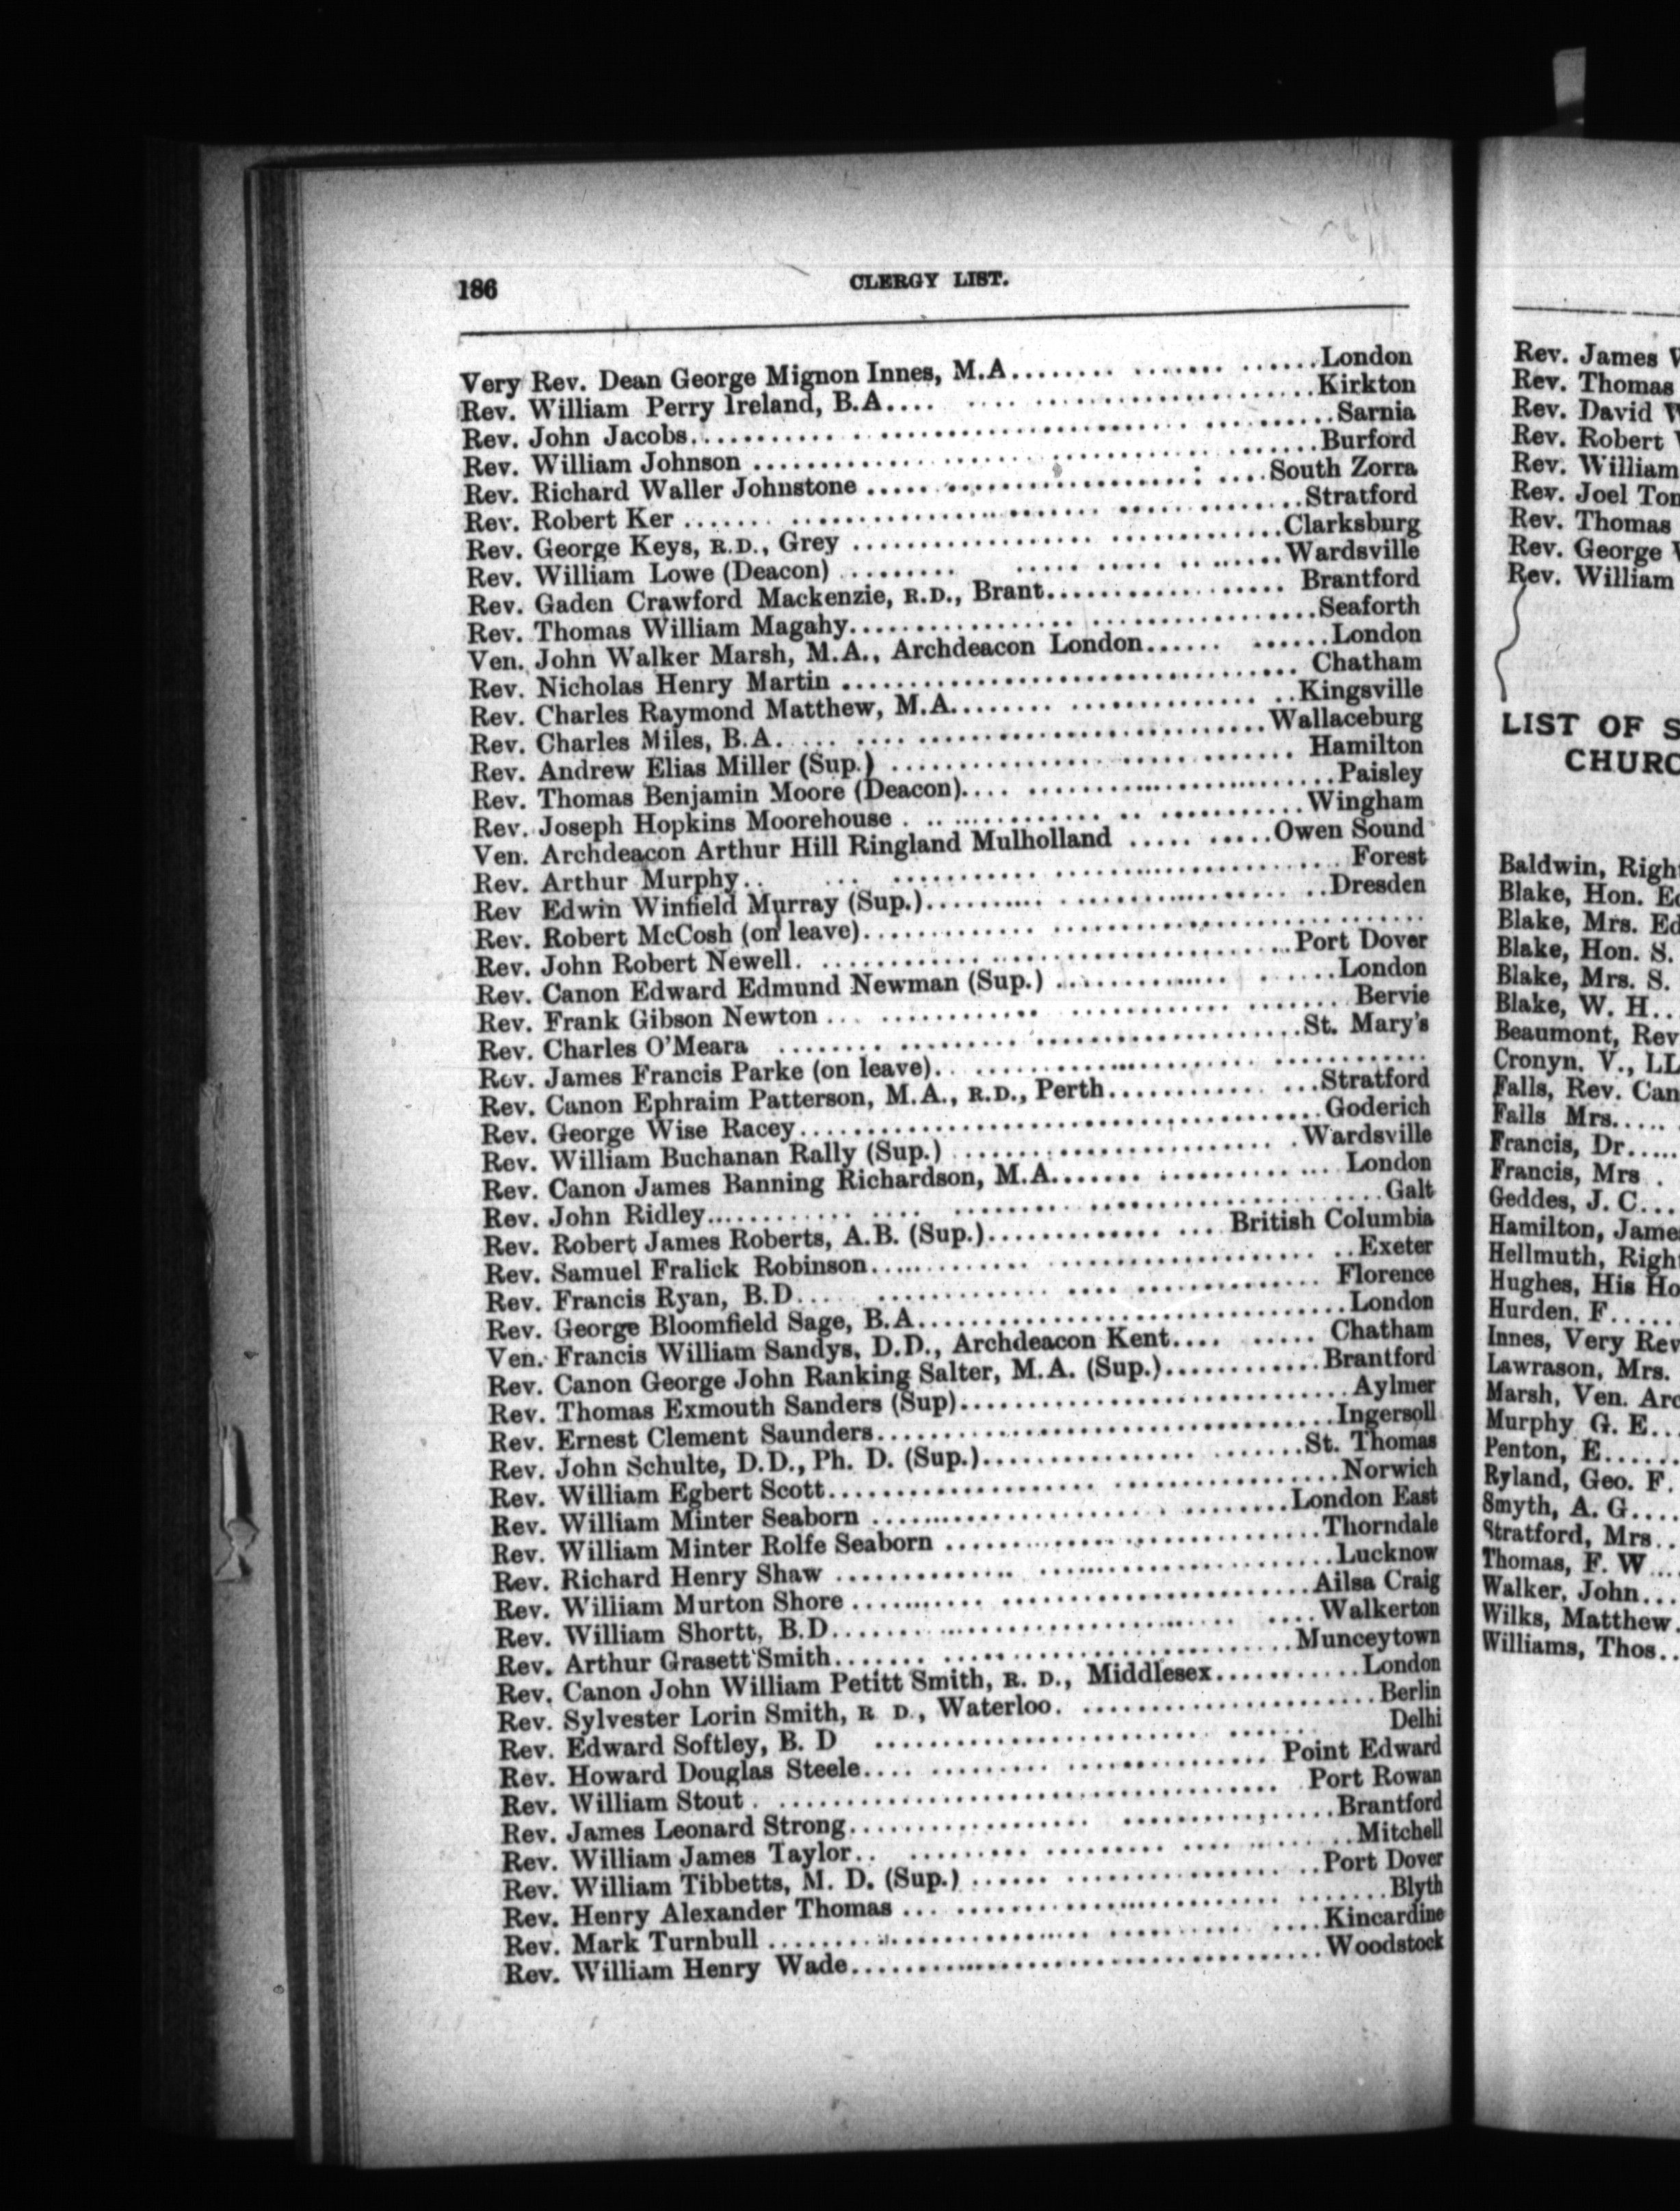 186 CLERGY LIST.
Very Rev. Dean George Mignon Innes, M.A........ ....... ......London
Rev. William Perry Ireland, B.A.... .... ....................Kirkton
Rev. John Jacobs........................................Sarnia
Rev. William Johnson ........................................Burford
Rev. Richard Waller Johnstone ..... ....................: ....South Zorra
Rev. Robert Ker ....... ........................................Stratford
Rev. George Keys, R.D., Grey .................. .............Clarksburg
Rev. William Lowe (Deacon) ......... ..... ..... .......Wardsville
Rev. Gaden Crawford Mackenzie, R.D., Brant.................. Brantford
Rev. Thomas William Magahy.................. .................Seaforth
Ven. John Walker Marsh, M.A., Archdeacon London...... ......London
Rev. Nicholas Henry Martin .................................. Chatham
Rev. Charles Raymond Matthew, M.A........ .............. ..Kingsville
Rev. Charles Miles, B.A. ... .... ..........................Wallaceburg
Rev. Andrew Elias Miller (Sup.) .............................. Hamilton
Rev. Thomas Benjamin Moore (Deacon).... .......................Paisley
Rev. Joseph Hopkins Moorehouse . .............. .. ...........Wingham
Ven. Archdeacon Arthur Hill Ringland Mulholland ..... .....Owen Sound
Rev. Arthur Murphy.. ... ........... .................... Forest
Rev Edwin Winfield Murray (Sup.).......... ................. ..Dresden
Rev. Robert McCosh (on leave)............. .............................
Rev. John Robert Newell. ....................................Port Dover
Rev. Canon Edward Edmund Newman (Sup.) ............. ......London
Rev. Frank Gibson Newton ... ............ ............ ....... Bervie
Rev. Charles O'Meara ........ ......... .....................St. Mary's
Rev. James Francis Parke (on leave).. .................... ............
Rev. Canon Ephraim Patterson, M.A., R.D., Perth........... ...Stratford
Rev. George Wise Racey........................................Goderich
Rev. William Buchanan Rally (Sup.) ........................ .Wardsville
Rev. Canon James Banning Richardson, M.A....... ........... ... London
Rev. John Ridley............ .... .............................Galt
Rev. Robert James Roberts, A.B. (Sup.)............. ... British Columbia
Rev. Samuel Fralick Robinson............ .................. ..Exeter
Rev. Francis Ryan, B.D... ............. .... ................ Florence
Rev. George Bloomfield Sage, B.A................................London
Ven. Francis William Sandys, D.D., Archdeacon Kent.... ..... Chatham
Rev. Canon George John Ranking Salter, M.A. (Sup.)............Brantford
Rev. Thomas Exmouth Sanders (Sup)..............................Aylmer
Rev. Ernest Clement Saunders..................................Ingersoll
Rev. John Schulte, D.D., Ph. D. (Sup.).................. .......St. Thomas
Rev. William Egbert Scott.................... ..................Norwich
Rev. William Minter Seaborn ...................... ........London East
Rev. William Minter Rolfe Seaborn .............................Thorndale
Rev. Richard Henry Shaw .............. .......................Lucknow
Rev. William Murton Shore .......... ........................Ailsa Craig
Rev. William Shortt, B.D........ ...................... ....Walkerton
Rev. Arthur Grasett Smith....... ...........................Munceytown
Rev. Canon John William Petitt Smith, R. D., Middlesex...........London
Rev. Sylvester Lorin Smith, R D., Waterloo. ......................Berlin
Rev. Edward Softley, B. D ........................ ...... Delhi
Rev. Howard Douglas Steele.... ......... ............... Point Edward
Rev. William Stout . .................................. Port Rowan
Rev. James Leonard Strong.................. ................Brantford
Rev. William James Taylor.. ......... ......... .... .........Mitchell
Rev. William Tibbetts, M. D. (Sup.) ...... ................ ..Port Dover
Rev. Henry Alexander Thomas ... ......................... .......Blyth
Rev. Mark Turnbull .............................. ....Kincardine
Rev. William Henry Wade....................................Woodstock
Rev. James
Rev. Thomas
Rev. David
Rev. Robert
Rev. William
Rev. Joel
Rev. Thomas
Rev. George
Rev. William
LIST OF S
CHURC
Baldwin, Righ
Blake, Hon. Ed
Blake, Mrs. Ed
Blake, Hon. S.
Blake, Mrs. S.
Blake, W. H..
Beaumont, Rev
Cronyn. V., LL
Falls, Rev. Can
Falls Mrs.....
Francis, Dr.....
Francis, Mrs .
Geddes, J. C...
Hamilton, Jame
Hellmuth, Righ
Hughes, His Ho
Hurden, F.....
Innes, Very Rev
Lawrason, Mrs.
Marsh, Ven. Arc
Murphy G. E..
Penton, E.....
Ryland, Geo. F.
Smyth, A. G....
Stratford, Mrs..
Thomas, F. W ...
Walker, John...
Wilks, Matthew.
Williams, Thos..